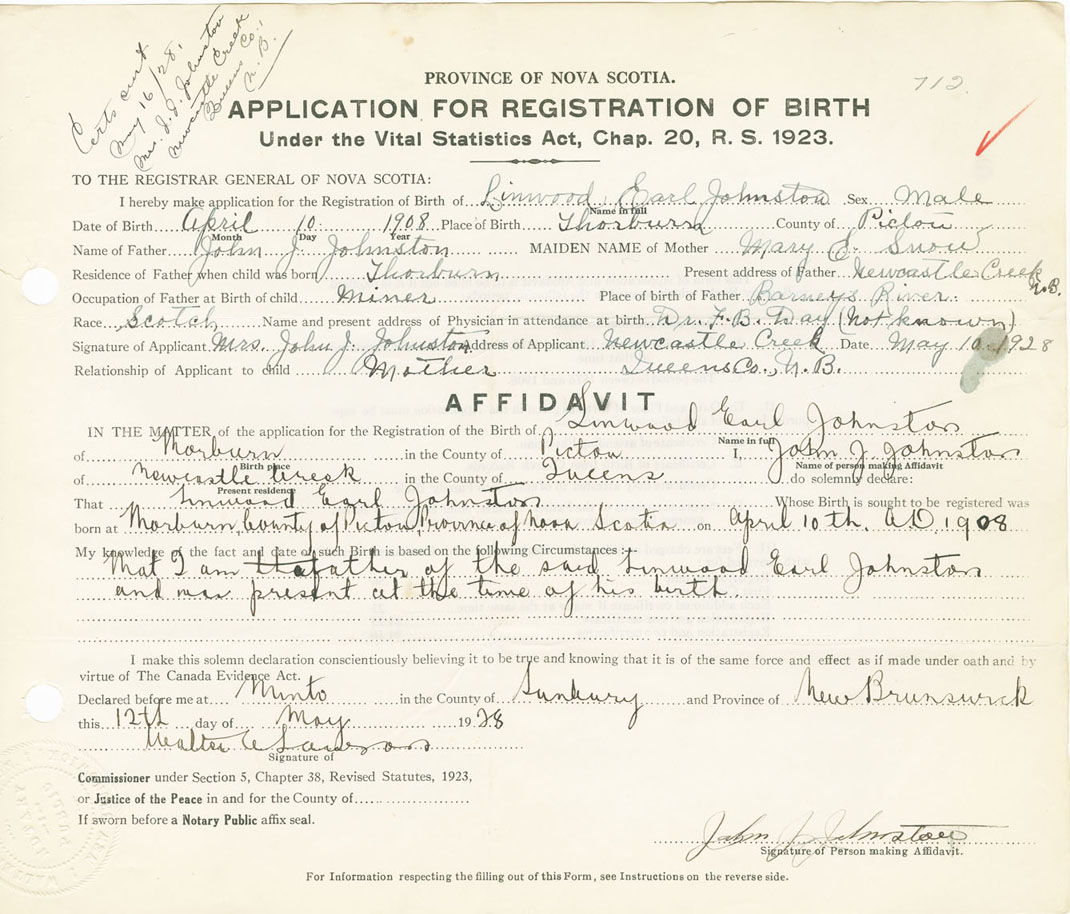 Certs sent
May 16/28.
Mrs. J. J. Johnston
Newcastle Creek
Queens Co.,
N.B.
712
PROVINCE OF NOVA SCOTIA.
APPLICATION FOR REGISTRATION OF BIRTH
Under the Vital Statistics Act, Chap. 20, R. S. 1923.
TO THE REGISTRAR GENERAL OF NOVA SCOTIA:
I hereby make application for the Registration of Birth of Linwood Earl Johnston Sex Male
Name in full
Date of Birth April 10 1908 Place of Birth Thorburn County of Pictou
Month Day Year
Name of Father John J. Johnston MAIDEN NAME of Mother Mary E. Snow
Residence of Father when child was born Thorburn Present address of Father Newcastle Creek N.B.
Occupation of Father at Birth of child Miner Place of birth of Father Barneys River.
Race Scotch Name and present address of Physician in attendance at birth Dr. F. B. Day (Not known)
Signature of Applicant Mrs. John J. Johnston Address of Applicant Newcastle Creek Date May 10 1928
Relationship of Applicant to child Mother Queens Co., N.B.
AFFIDAVIT
IN THE MATTER of the application for the Registration of the Birth of Linwood Earl Johnston
Name in full
of Thorburn in the County of Pictou I, John J. Johnston
Birth place Name of person making Affidavit
of Newcastle Creek in the County of Queens do solemnly declare:
Present residence
That Linwood Earl Johnston Whose Birth is sought to be registered was
born at Thorburn, County of Pictou, Province of Nova Scotia on April 10th. A.D. 1908
My knowledge of the fact and date of such Birth is based on the following Circumstances :—
That I am the father of the said Linwood Earl Johnston
and was present at the time of his birth.
I make this solemn declaration conscientiously believing it to be true and knowing that it is of the same force and effect as if made under oath and by
virtue of The Canada Evidence Act.
Declared before me at Minto in the County of Sunbury and Province of New Brunswick
this 12th day of May 1928
Walter
Signature of
Commissioner under Section 5, Chapter 38, Revised Statutes, 1923,
or Justice of the Peace in and for the County of
If sworn before a Notary Public affix seal.
John J Johnston
Signature of Person making Affidavit.
For Information respecting the filling out of this Form, see Instructions on the reverse side.